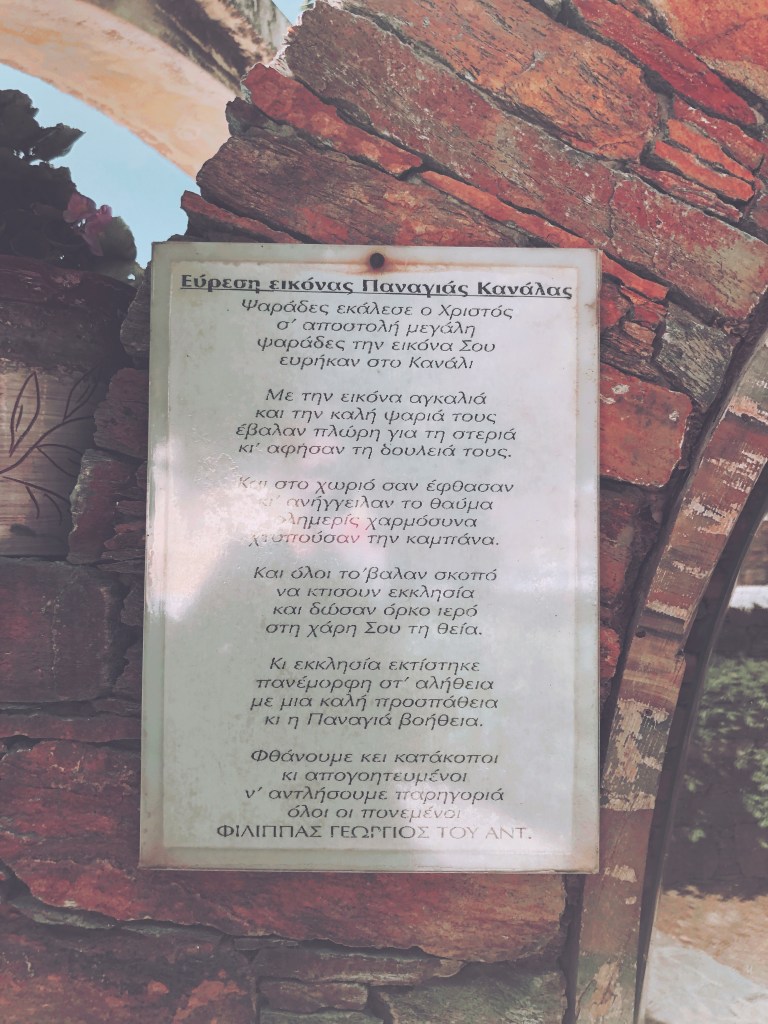 Εύρεση εικόνας Παναγιάς Κανάλας
Ψαράδες εκάλεσε ο Χριστός
σ' αποστολή μεγάλη
ψαράδες την εικόνα Σου
ευρήκαν στο Κανάλι
Με την εικόνα αγκαλιά
και την καλή ψαριά τους
έβαλαν πλώρη για τη στεριά
κι' αφήσαν τη δουλειά τους.
Και στο χωριό σαν έφθασαν
κι' ανήγγειλαν το θαύμα
ολημερίς χαρμόσυνα
χτυπούσαν την καμπάνα.
Και όλοι το'βαλαν σκοπό
να κτισουν εκκλησία
και δώσαν όρκο ιερό
στη χάρη Σου τη θεία.
Κι εκκλησία εκτίστηκε
πανέμορφη στ' αλήθεια
με μια καλή προσπάθεια
κι η Παναγιά βοήθεια.
Φθάνουμε κει κατάκοποι
κι απογοητευμένοι
ν' αντλήσουμε παρηγοριά
όλοι οι πονεμένοι
ΦΙΛΙΠΠΑΣ ΓΕΩΡΓΙΟΣ ΤΟΥ ΑΝΤ.